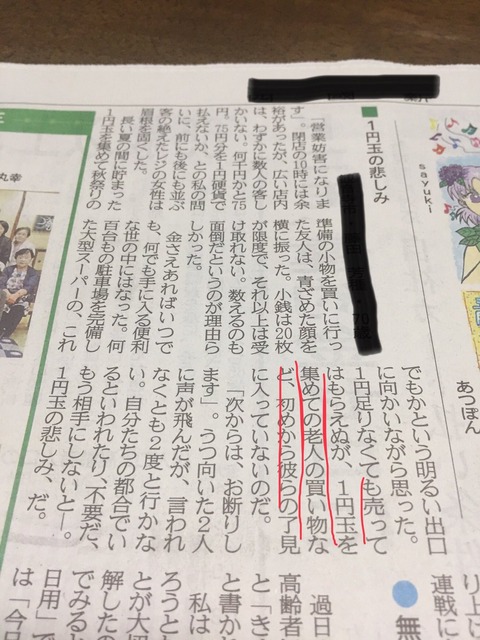 sayuki
あつぽん
1円玉の悲しみ
「営業妨害になりま
す」。閉店の10時には余
裕があったが、広い店内
は、わずかに数人の客し
かいない。何千円かと75
円。75円分を1円硬貨で
払えないか、との私の問
いに、前にも後にも並ぶ
客の絶えたレジの女性は
眉根を固くした。
長い夏の間に貯まった
1円玉を集めて秋祭りの
準備の小物を買いに行っ
た友人は、青ざめた顔を
横に振った。小銭は20枚
が限度で、それ以上は受
け取れない。数えるのも
面倒だというのが理由ら
しかった。
金さえあればいつで
も、何でも手に入る便利
な世の中にはなった。何
百台もの駐車場を完備し
た大型スーパーの、これ
でもかという明るい出口
に向かいながら思った。
1円足りなくても売って
はもらえぬが、1円玉を
集めての老人の買い物な
ど、初めから彼らの了見
に入っていないのだ。
「次からは、お断りし
ます」。うつ向いた2人
に声が飛んだが、言われ
なくとも2度と行かな
い。自分たちの都合でい
るといわれたり、不要だ、
もう相手にしないと―。
1円玉の悲しみ、だ。
丸幸
連戦に
無
過日
高齢者
と「き
と書か
私は
ろうと
とが大
解したの
でみる
日用」で
は「今日